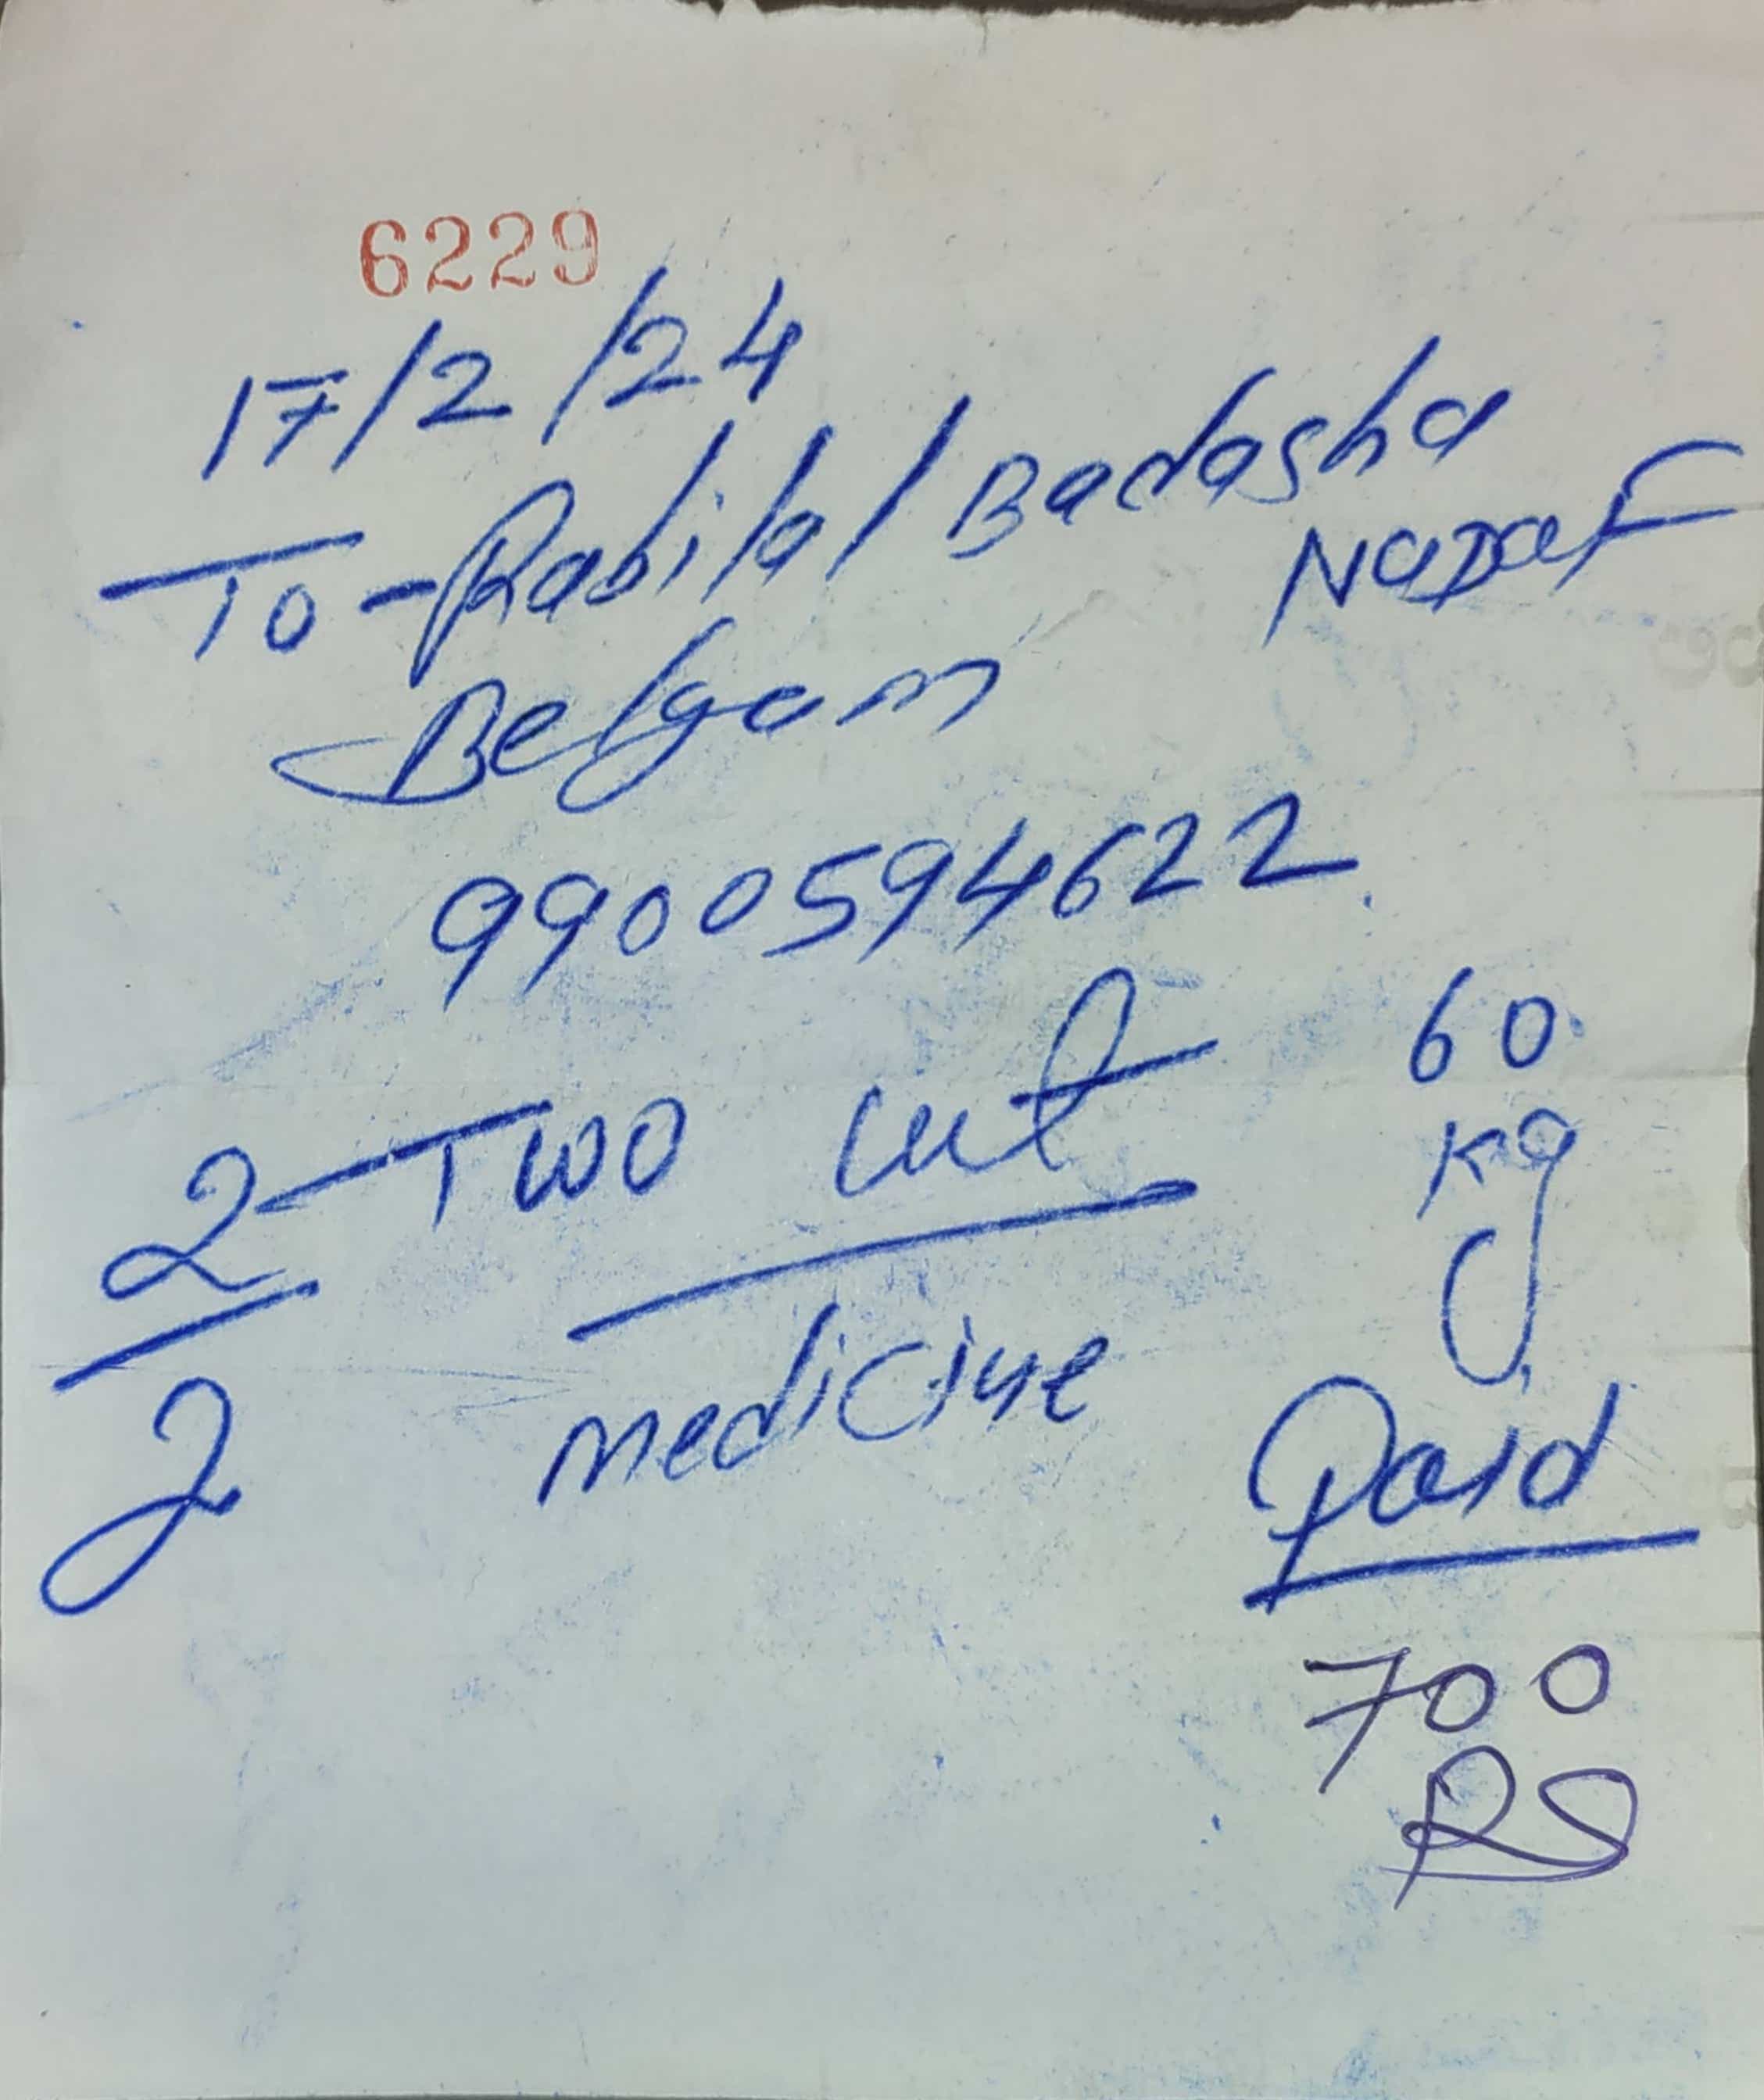 6229
17/2/24
To - Rabilal Badasha
Nadaf
Belgam
9900594622
2 - Two cut 60
kg
2 medicine
Paid
700
RS